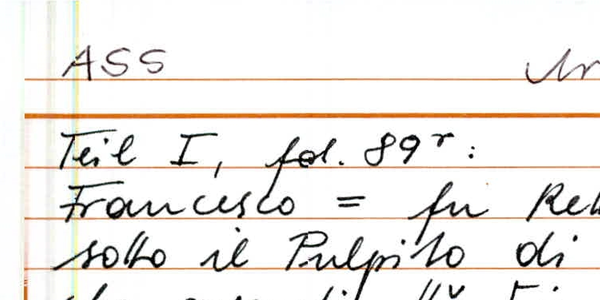 ASS
Teil I, fol. 89r:
Francesco = fu
sotto il Pulpito di